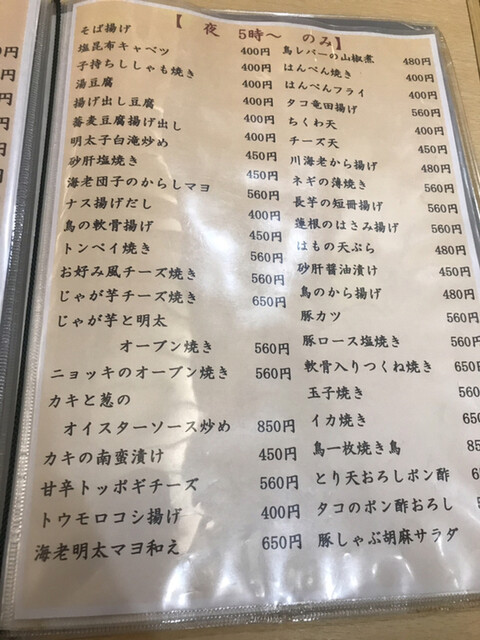 【 夜 5時～ のみ】
そば揚げ 400円
塩昆布キャベツ 400円
子持ちししゃも焼き 400円
湯豆腐 400円
揚げ出し豆腐 450円
蕎麦豆腐揚げ出し 400円
明太子白滝炒め 450円
砂肝塩焼き 450円
海老団子のからしマヨ 560円
ナス揚げだし 400円
鳥の軟骨揚げ 450円
トンペイ焼き 560円
お好み風チーズ焼き 560円
じゃが芋チーズ焼き 650円
じゃが芋と明太
オーブン焼き 560円
ニョッキのオーブン焼き 560円
カキと葱の
オイスターソース炒め 850円
カキの南蛮漬け 450円
甘辛トッポギチーズ 560円
トウモロコシ揚げ 400円
海老明太マヨ和え 650円
鳥レバーの山椒煮 480円
はんぺん焼き 400円
はんぺんフライ 400円
タコ竜田揚げ 560円
ちくわ天 400円
チーズ天 450円
川海老から揚げ 480円
ネギの薄焼き 560円
長芋の短冊揚げ 560円
蓮根のはさみ揚げ 560円
はもの天ぷら 480円
砂肝醤油漬け 450円
鳥のから揚げ 480円
豚カツ 560円
豚ロース塩焼き 560円
軟骨入りつくね焼き 650
玉子焼き 560
イカ焼き 560
鳥一枚焼き鳥 85
とり天おろしポン酢
タコのポン酢おろし
豚しゃぶ胡麻サラダ